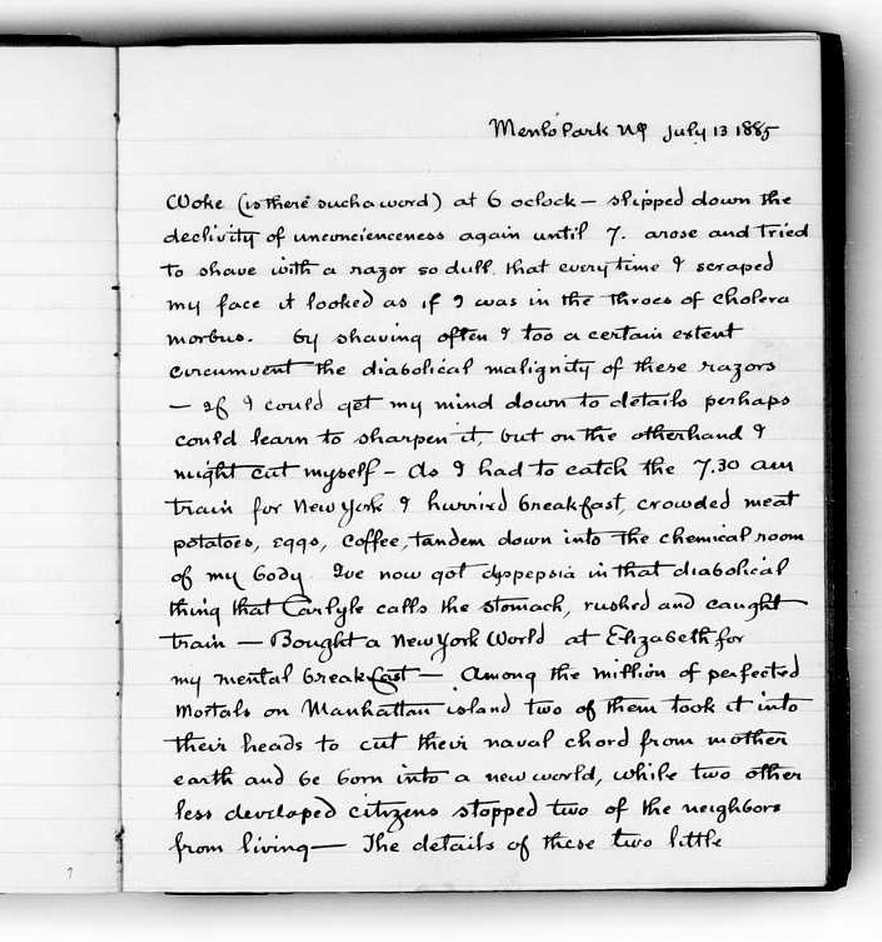 Menlo Park NJ July 13 1885
Woke (is there such a word) at 6 oclock — slipped down the
declivity of unconcienceness again until 7. arose and tried
to shave with a razor so dull that every time I scraped
my face it looked as if I was in the throes of cholera
morbus. By shaving often I too a certain extent
circumvent the diabolical malignity of these razors
— If I could get my mind down to details perhaps
could learn to sharpen it, but on the otherhand I
might cut myself — As I had to catch the 7.30 am
train for New York I hurried breakfast, crowded meat
potatoes, eggs, coffee, tandem down into the chemical room
of my body. Ive now got dyspepsia in that diabolical
thing that Carlyle calls the stomach, rushed and caught
train — Bought a New York World at Elizabeth for
my mental breakfast — Among the million of perfected
mortals on Manhattan island two of them took it into
their heads to cut their naval chord from mother
earth and be born into a new world, while two other
less developed citizens stopped two of the neighbors
from living — The details of these two little